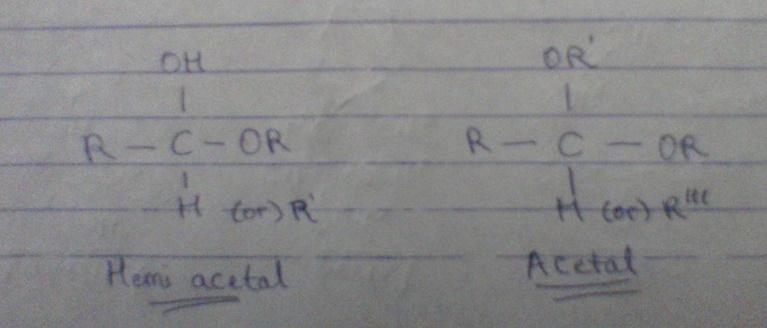 OH OR'
R - C - OR R - C - OR
H (or) R' H (or) R'''
Hemi acetal Acetal